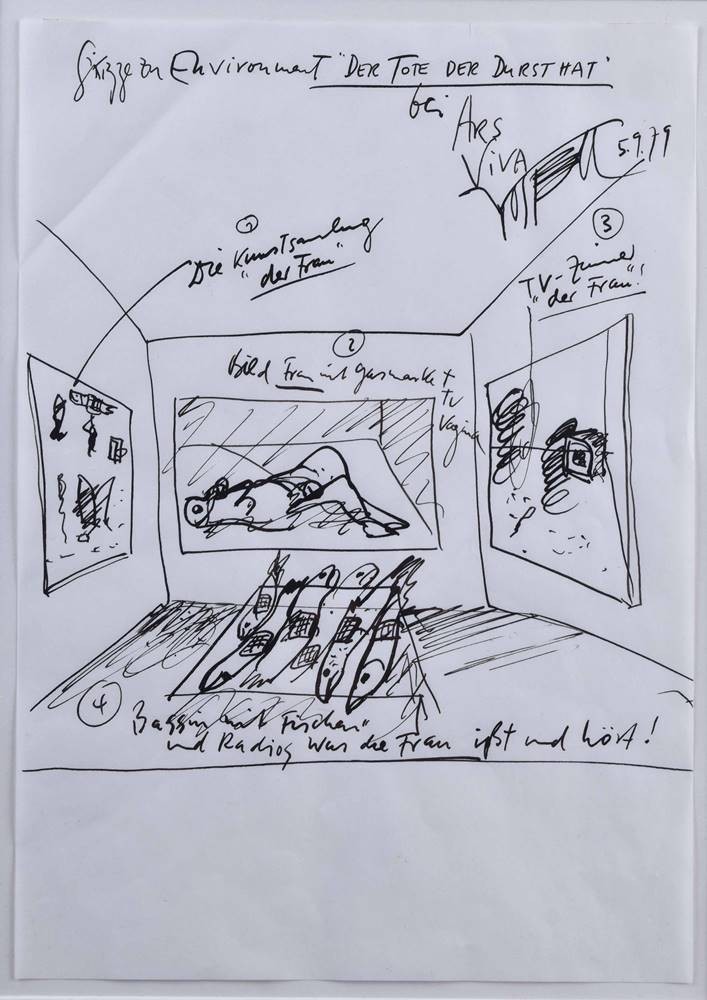 Skizze zu Environment "DER TOTE DER DURST HAT"
bei ARS
VIVA
Vostell 5.9.79
1
Die Kunstsamlung
"der Frau"
3
TV-Zimmer
"der Frau"!
2
Bild Frau mit Gasmaske +
TV
Vagina
4
Bassin mit Fischen"
und Radios was die Frau ißt und hört!